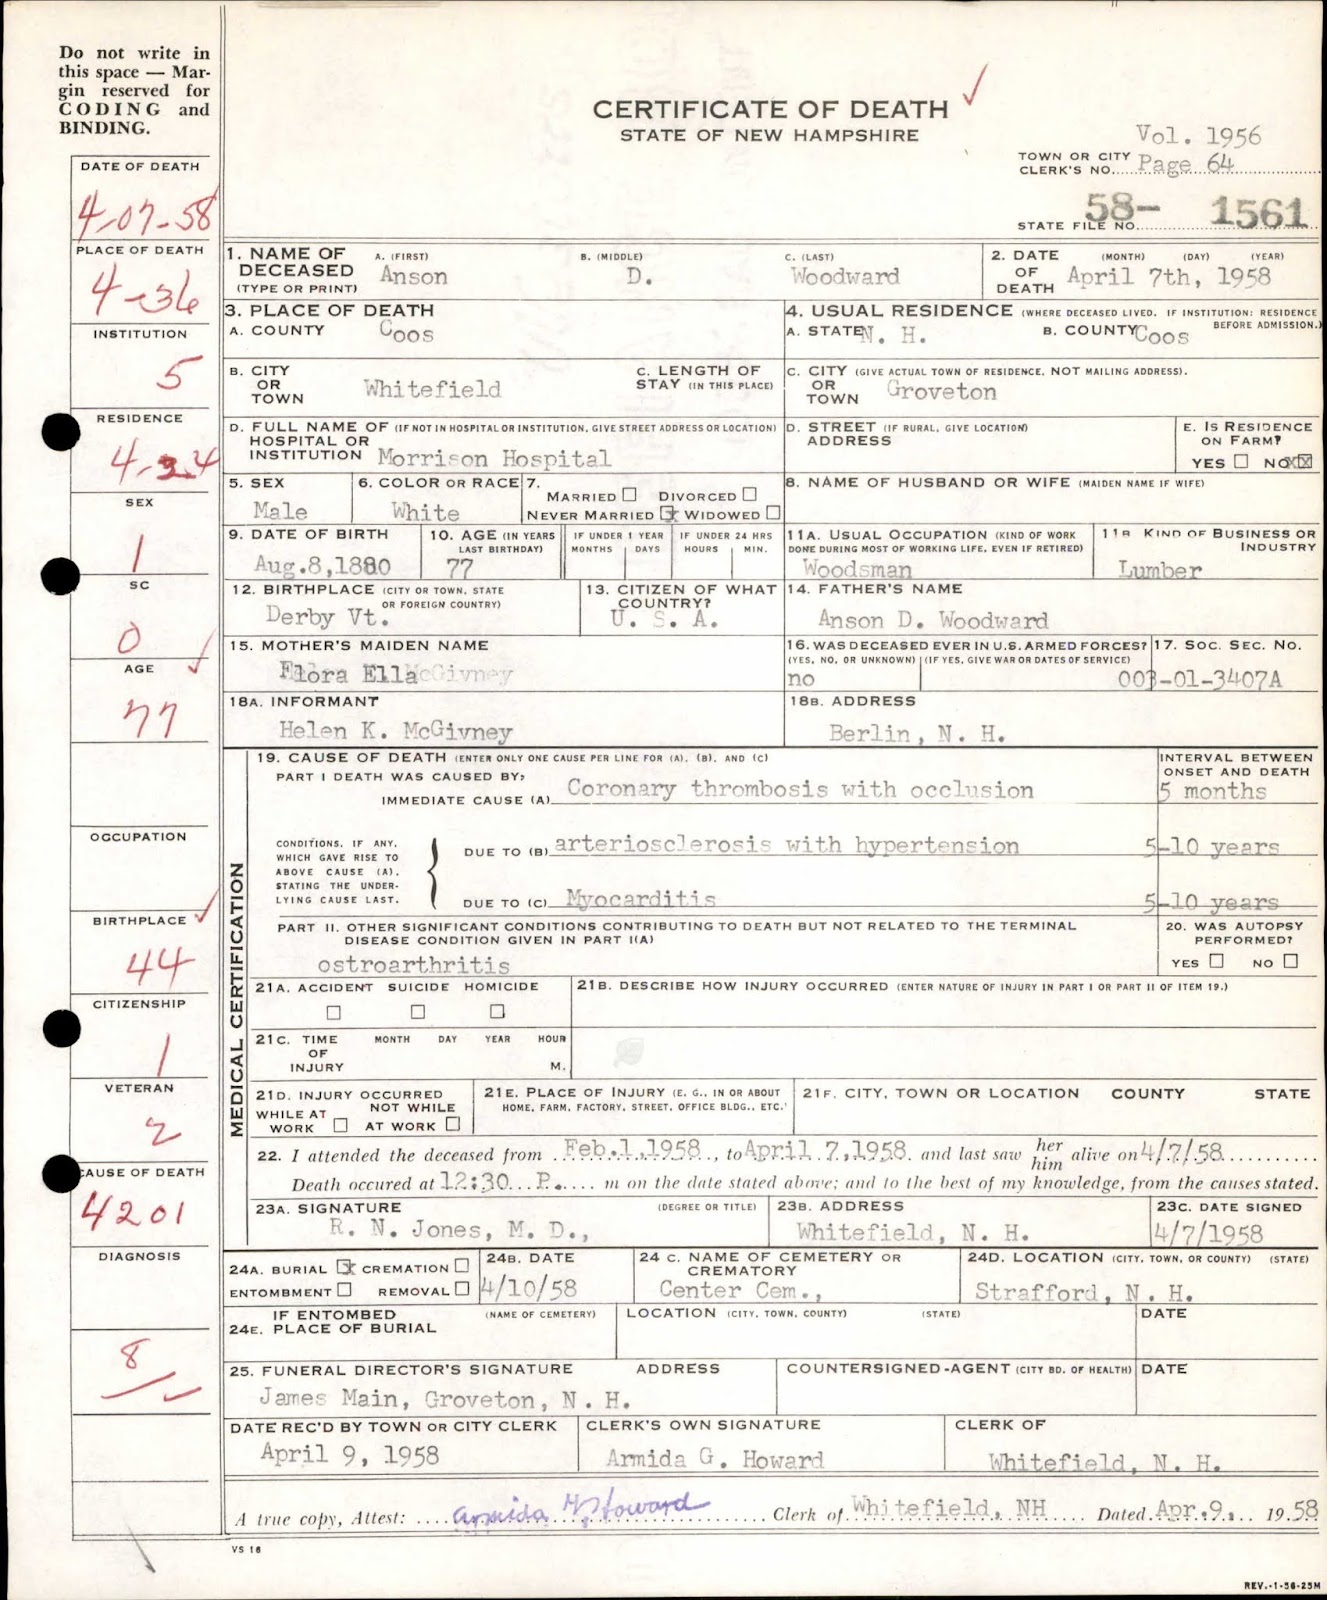 Do not write in
this space — Mar-
gin reserved for
CODING and
BINDING.
DATE OF DEATH
4-07-58
PLACE OF DEATH
4-36
INSTITUTION
5
RESIDENCE
4-34
SEX
1
SC
0
AGE
77
OCCUPATION
BIRTHPLACE
44
CITIZENSHIP
1
VETERAN
2
CAUSE OF DEATH
4201
DIAGNOSIS
8
CERTIFICATE OF DEATH
STATE OF NEW HAMPSHIRE
Vol. 1956
TOWN OR CITY
CLERK'S NO. Page 64
STATE FILE NO. 58- 1561
1. NAME OF DECEASED (TYPE OR PRINT) A. (FIRST) Anson B. (MIDDLE) D. C. (LAST) Woodward
2. DATE OF DEATH (MONTH) (DAY) (YEAR) April 7th, 1958
3. PLACE OF DEATH
A. COUNTY Coos
4. USUAL RESIDENCE (WHERE DECEASED LIVED. IF INSTITUTION: RESIDENCE BEFORE ADMISSION.)
A. STATE N. H. B. COUNTY Coos
B. CITY OR TOWN Whitefield
C. LENGTH OF STAY (IN THIS PLACE)
C. CITY (GIVE ACTUAL TOWN OF RESIDENCE, NOT MAILING ADDRESS). OR TOWN Groveton
D. FULL NAME OF (IF NOT IN HOSPITAL OR INSTITUTION, GIVE STREET ADDRESS OR LOCATION) HOSPITAL OR INSTITUTION Morrison Hospital
D. STREET (IF RURAL, GIVE LOCATION) ADDRESS
E. IS RESIDENCE ON FARM?
YES NO X
5. SEX Male
6. COLOR OR RACE White
7. MARRIED DIVORCED
NEVER MARRIED X WIDOWED
8. NAME OF HUSBAND OR WIFE (MAIDEN NAME IF WIFE)
9. DATE OF BIRTH Aug.8,1880
10. AGE (IN YEARS LAST BIRTHDAY) 77
IF UNDER 1 YEAR MONTHS DAYS
IF UNDER 24 HRS HOURS MIN.
11A. USUAL OCCUPATION (KIND OF WORK DONE DURING MOST OF WORKING LIFE, EVEN IF RETIRED) Woodsman
11B KIND OF BUSINESS OR INDUSTRY Lumber
12. BIRTHPLACE (CITY OR TOWN, STATE OR FOREIGN COUNTRY) Derby Vt.
13. CITIZEN OF WHAT COUNTRY? U. S. A.
14. FATHER'S NAME Anson D. Woodward
15. MOTHER'S MAIDEN NAME Flora Ella McGivney
16. WAS DECEASED EVER IN U.S. ARMED FORCES? (YES, NO, OR UNKNOWN) (IF YES, GIVE WAR OR DATES OF SERVICE) no
17. SOC. SEC. NO. 003-01-3407A
18A. INFORMANT Helen K. McGivney
18B. ADDRESS Berlin, N. H.
MEDICAL CERTIFICATION
19. CAUSE OF DEATH (ENTER ONLY ONE CAUSE PER LINE FOR (A), (B), AND (C)
INTERVAL BETWEEN ONSET AND DEATH
PART I DEATH WAS CAUSED BY:
IMMEDIATE CAUSE (A) Coronary thrombosis with occlusion 5 months
CONDITIONS, IF ANY, WHICH GAVE RISE TO ABOVE CAUSE (A), STATING THE UNDER-LYING CAUSE LAST.
DUE TO (B) arteriosclerosis with hypertension 5-10 years
DUE TO (C) Myocarditis 5-10 years
PART II. OTHER SIGNIFICANT CONDITIONS CONTRIBUTING TO DEATH BUT NOT RELATED TO THE TERMINAL DISEASE CONDITION GIVEN IN PART I(A)
ostroarthritis
20. WAS AUTOPSY PERFORMED?
YES NO
21A. ACCIDENT SUICIDE HOMICIDE
21B. DESCRIBE HOW INJURY OCCURRED (ENTER NATURE OF INJURY IN PART I OR PART II OF ITEM 19.)
21C. TIME OF INJURY MONTH DAY YEAR HOUR M.
21D. INJURY OCCURRED WHILE AT WORK NOT WHILE AT WORK
21E. PLACE OF INJURY (E. G., IN OR ABOUT HOME, FARM, FACTORY, STREET, OFFICE BLDG., ETC.)
21F. CITY, TOWN OR LOCATION COUNTY STATE
22. I attended the deceased from Feb.1,1958, to April 7,1958 and last saw her him alive on 4/7/58
Death occured at 12:30 P. m on the date stated above; and to the best of my knowledge, from the causes stated.
23A. SIGNATURE (DEGREE OR TITLE) R. N. Jones, M. D.,
23B. ADDRESS Whitefield, N. H.
23C. DATE SIGNED 4/7/1958
24A. BURIAL X CREMATION
ENTOMBMENT REMOVAL
24B. DATE 4/10/58
24 C. NAME OF CEMETERY OR CREMATORY Center Cem.,
24D. LOCATION (CITY, TOWN, OR COUNTY) (STATE) Strafford, N. H.
IF ENTOMBED (NAME OF CEMETERY) LOCATION (CITY, TOWN, COUNTY) (STATE) DATE
24E. PLACE OF BURIAL
25. FUNERAL DIRECTOR'S SIGNATURE ADDRESS
James Main, Groveton, N. H.
COUNTERSIGNED-AGENT (CITY BD. OF HEALTH) DATE
DATE REC'D BY TOWN OR CITY CLERK April 9, 1958
CLERK'S OWN SIGNATURE Armida G. Howard
CLERK OF Whitefield, N. H.
A true copy, Attest: Armida G. Howard Clerk of Whitefield, NH Dated Apr.9, 1958
VS 16
REV.-1-56-25M